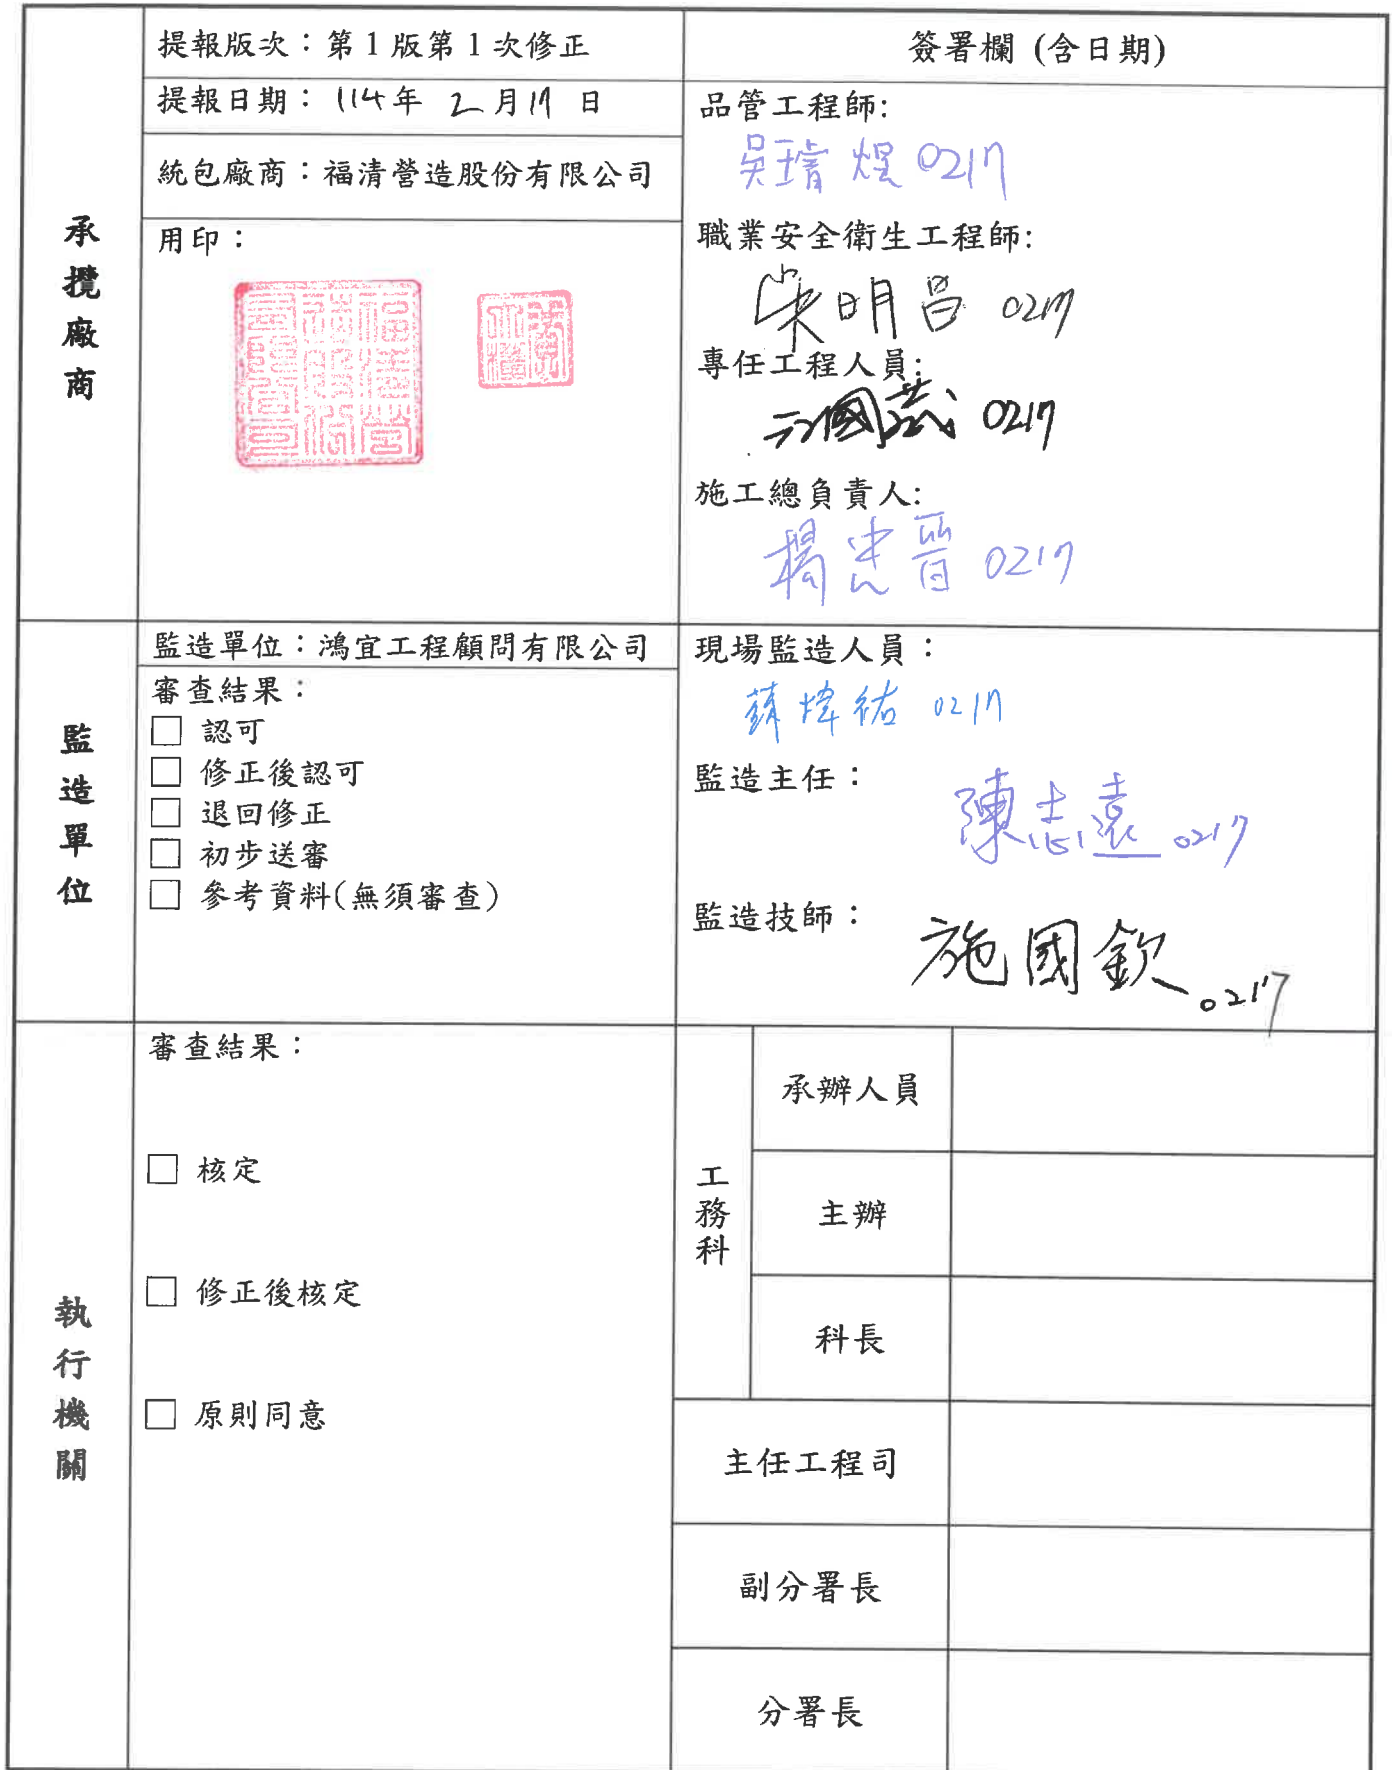 承攬廠商
提報版次：第1版第1次修正
簽署欄 (含日期)
提報日期：114年 2月17日
統包廠商：福清營造股份有限公司
用印：
品管工程師:
0217
職業安全衛生工程師:
朱明昌 0217
專任工程人員:
0217
施工總負責人:
楊忠晉 0217
監造單位
監造單位：鴻宜工程顧問有限公司
審查結果：
□ 認可
□ 修正後認可
□ 退回修正
□ 初步送審
□ 參考資料(無須審查)
現場監造人員：
0217
監造主任：
陳志遠 0217
監造技師：
施國欽 0217
執行機關
審查結果：
□ 核定
□ 修正後核定
□ 原則同意
工務科
承辦人員
主辦
科長
主任工程司
副分署長
分署長